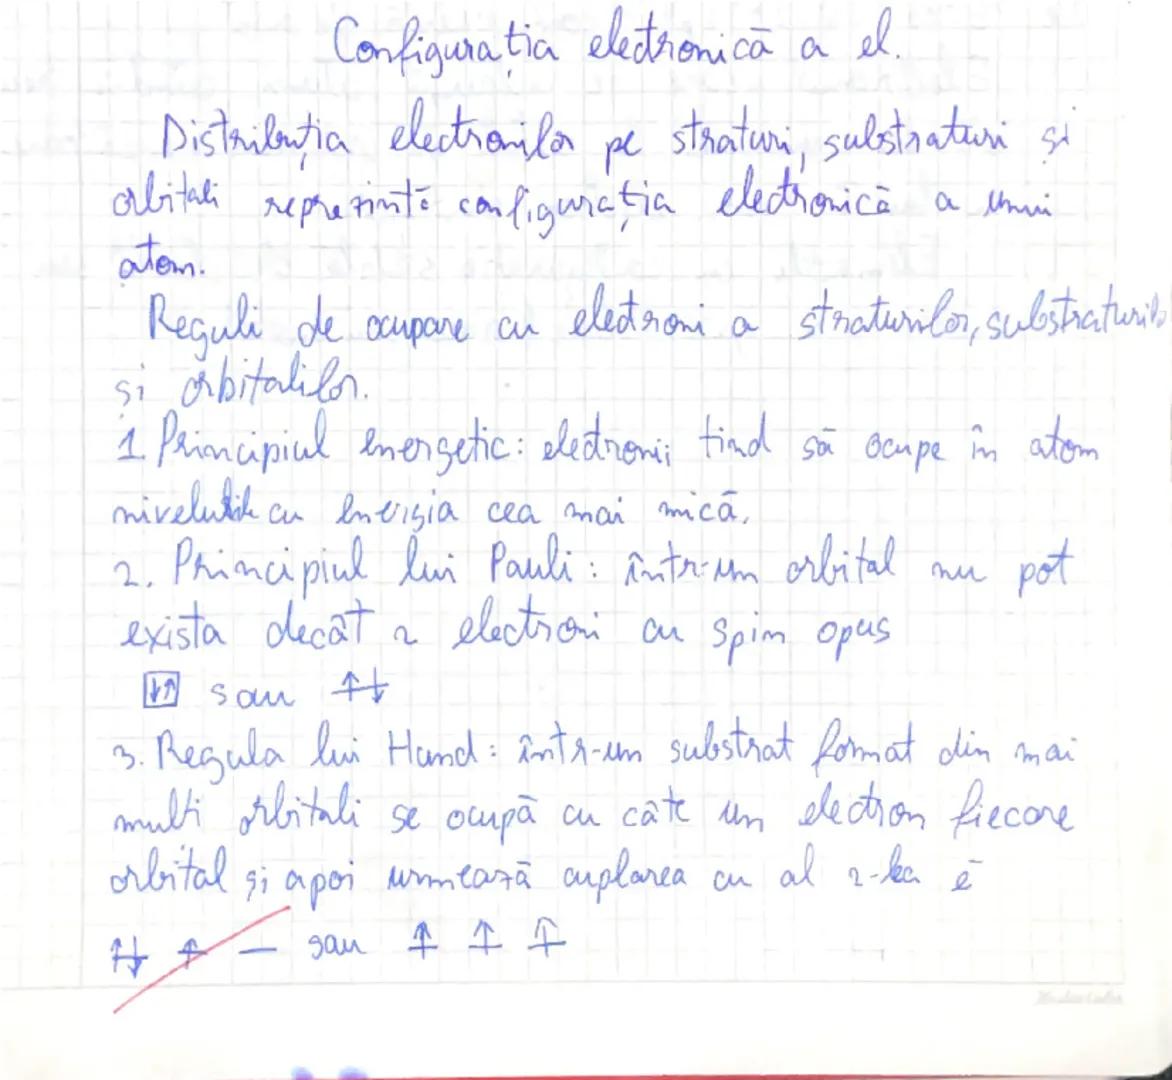 Configurația electronică a el.
Distribuția electronilor pe straturi, substraturi și
orbitali reprezintă configurația electronică a unui
atom.
Reguli de ocupare cu electroni a straturilor, substraturilo
și orbitalilor.
1 Principiul energetic: electronii tind să ocupe în atom
nivelurile cu energia cea mai mică.
2. Principiul lui Pauli: într-un orbital nu pot
exista decât 2 electroni cu spin opus
↓↑ sau ↑↓
3. Regula lui Hund: într-un substrat format din mai
multi orbitali se ocupă cu câte un electron fiecare
orbital și apoi urmează cuplarea cu al 2-lea ē
↑↓ ↑ — sau ↑ ↑ ↑